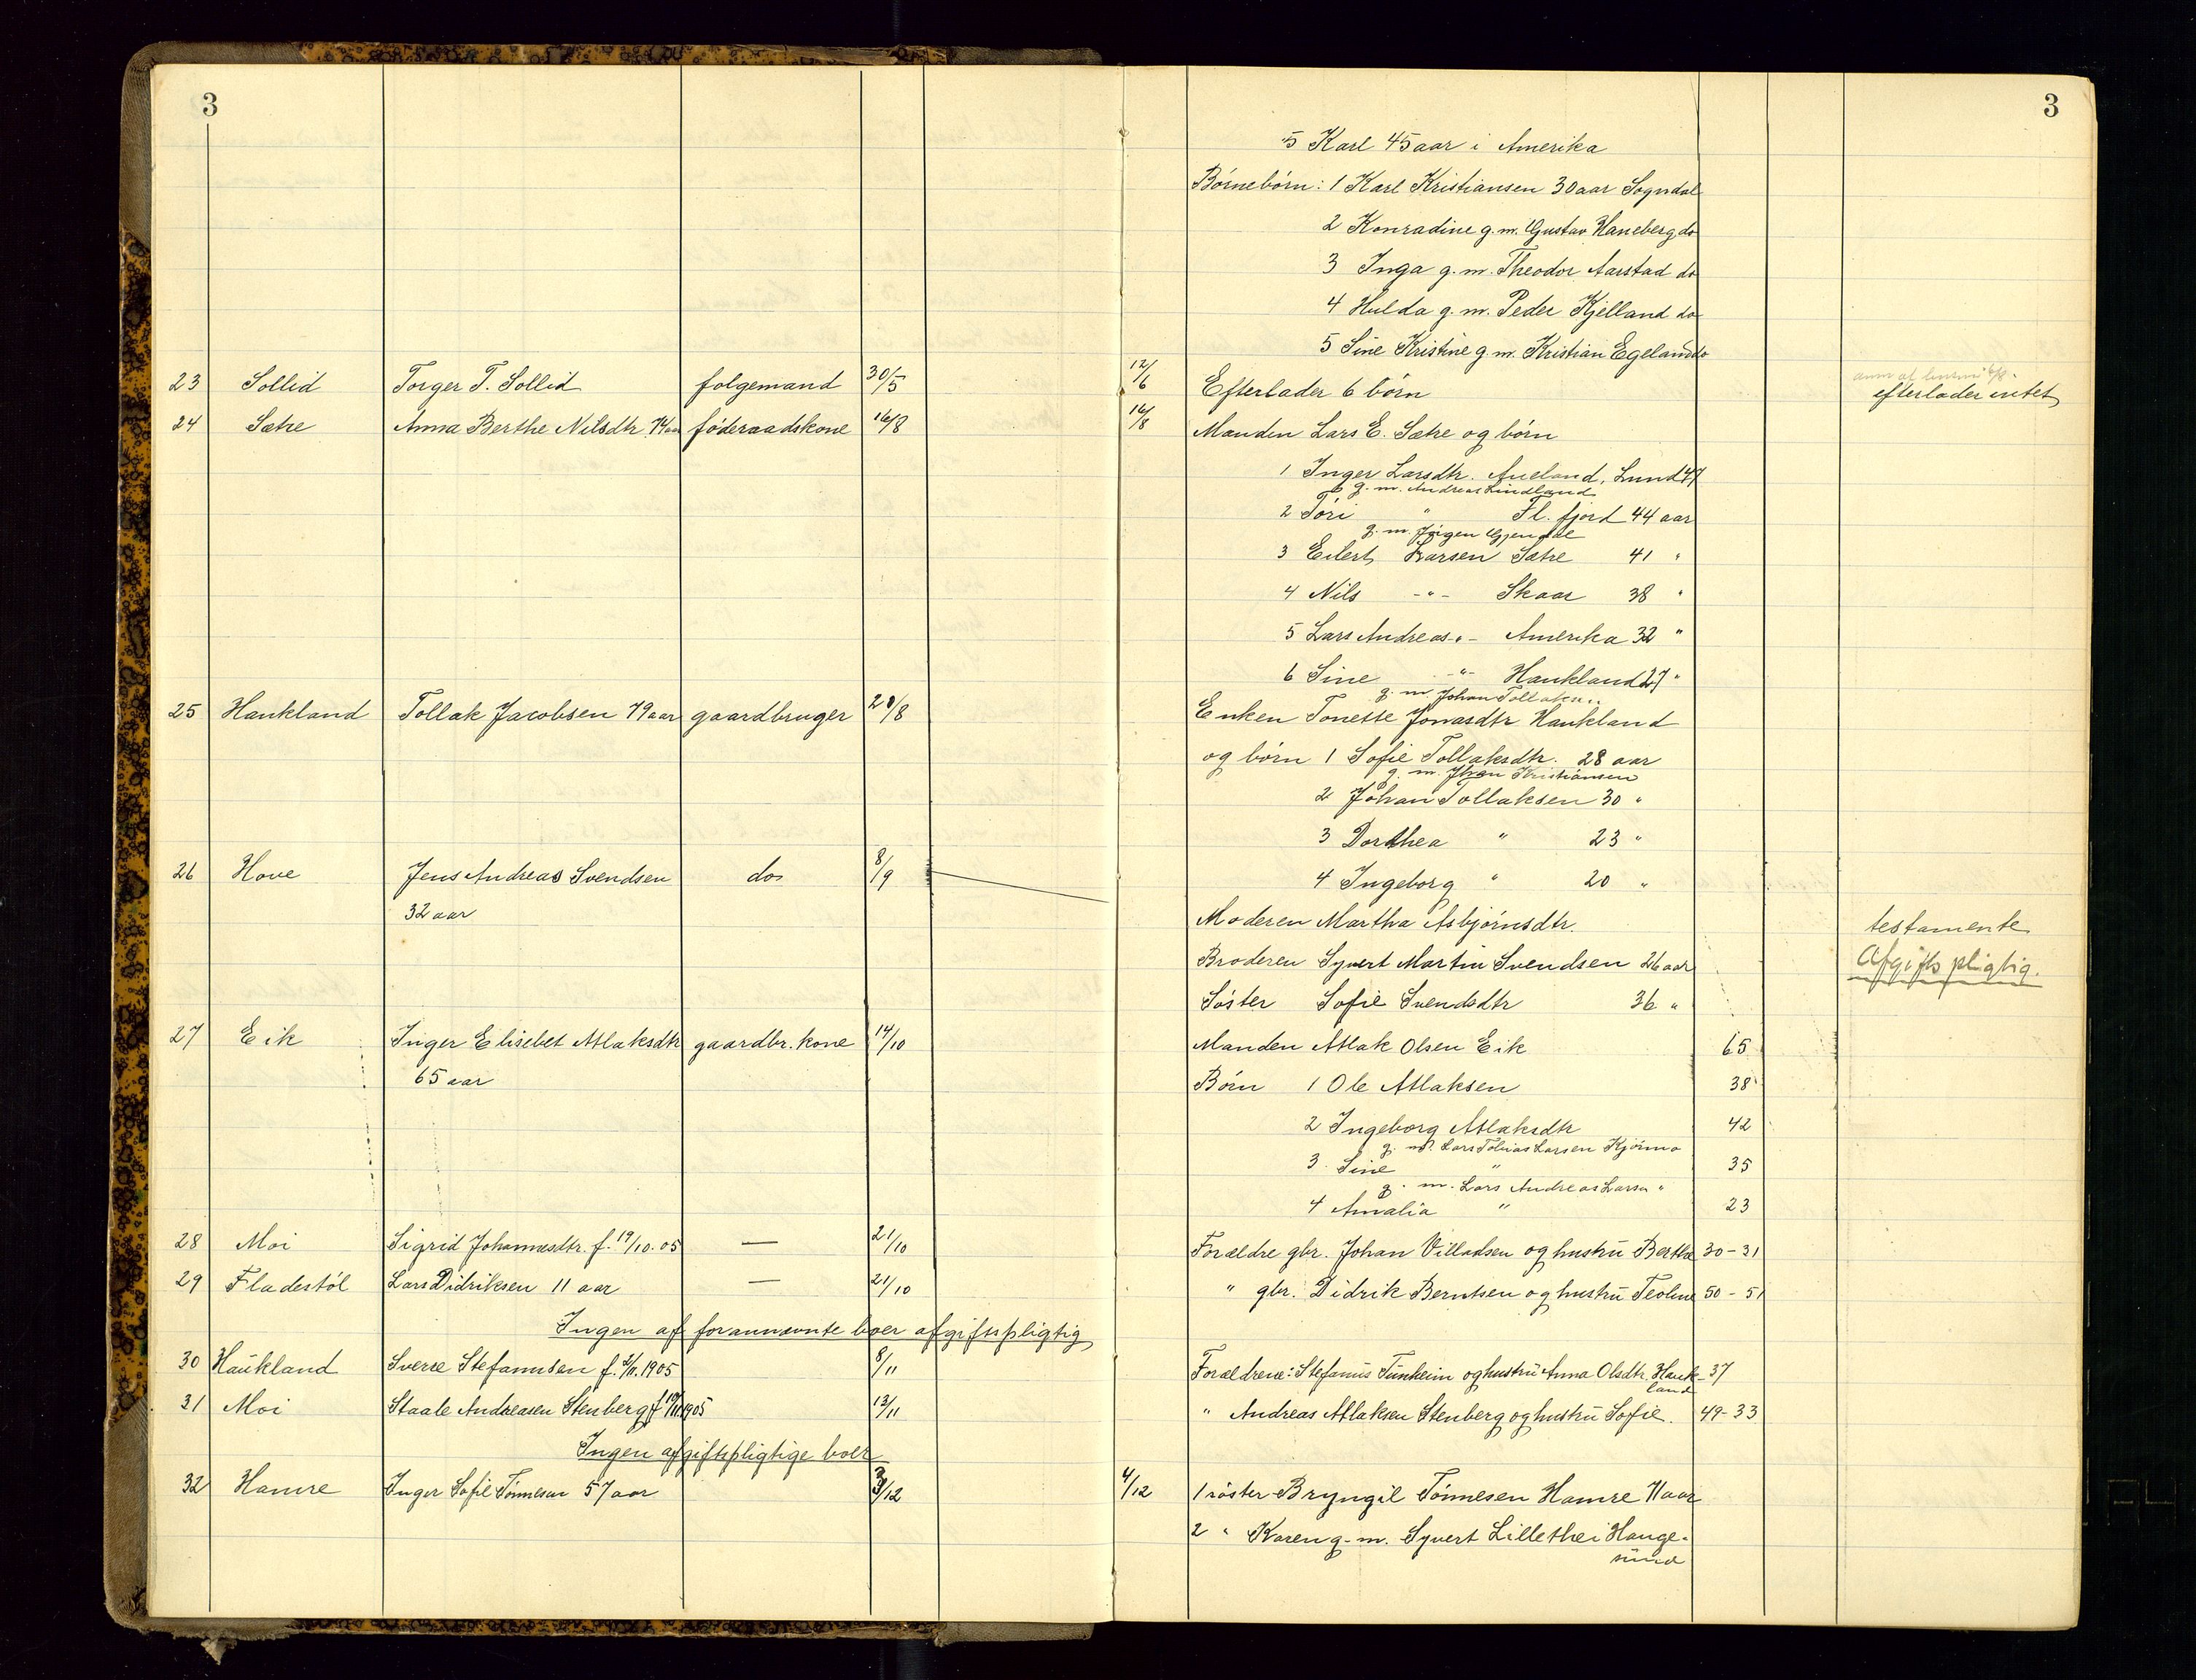 3
3
5 Karl 45 aar i Amerika
Børnebørn: 1 Karl Kristiansen 30 aar Sogndal
2 Konradine g. m. Gustav Haneberg do
3 Inga g. m. Theodor Aarstad do
4 Hulda g. m. Peder Kjelland do
5 Sine Kristine g. m. Kristian Egeland do
23 Sollid Torger T. Sollid folgemand 30/5 12/6 Efterlader 6 børn efterlader intet
24 Sætre Anna Berthe Nilsdtr 74 aar føderaadskone 16/8 16/8 Manden Lars E. Sætre og børn
1 Inger Larsdtr. Aueland, Lund 47
g. m. Andreas Lindland
2 Tøri " Fl. fjord 44 aar
g. m. Jørgen Gjendal
3 Eilert Larsen Sætre 41 "
4 Nils -"- Skaar 38 "
5 Lars Andreas -"- Amerika 32 "
6 Sine -"- Haukland 27 "
g. m. Johan Tollaksen
25 Haukland Tollak Jacobsen 79 aar gaardbruger 28/8 Enken Tonette Jonasdtr Haukland
og børn 1 Sofie Tollaksdtr. 28 aar
g. m. Johan Kristiansen
2 Johan Tollaksen 30 "
3 Dorthea " 23 "
26 Hove Jens Andreas Svendsen do 8/9 4 Ingeborg " 20 "
32 aar Moderen Martha Asbjørnsdtr. testamente
Broderen Syvert Martin Svendsen 26 aar Afgiftspligtig.
Søster Sofie Svendsdtr 36 "
27 Eik Inger Elisebet Atlaksdtr gaardbr. kone 14/10 Manden Atlak Olsen Eik 65
65 aar Børn 1 Ole Atlaksen 38
2 Ingeborg Atlaksdtr 42
g. m. Lars Tobias Larsen Kjørmo
3 Sine " 35
g. m. Lars Andreas Larsen "
4 Amalia " 23
28 Moi Sigrid Johannesdtr. f. 19/10.05 — 21/10 Forældre gbr. Johan Villadsen og hustru Berthe 30-31
29 Fladestøl Lars Didriksen 11 aar — 21/10 " gbr. Didrik Berntsen og hustru Teoline 50-51
Ingen af forannævnte boer afgiftspligtig
30 Haukland Sverre Stefanusen f. 2/11.1905 8/11 Forældrene: Stefanus Tunheim og hustru Anna Olsdtr. Hauk- 37
land
31 Moi Staale Andreasen Stenberg f 10/11 1905 13/11 " Andreas Atlaksen Stenberg og hustru Sofie. 49-33
Ingen afgiftspligtige boer
32 Hamre Inger Sofie Tønnesen 57 aar 3/12 4/12 1 søster Bryngil Tønnesen Hamre 71 aar
2 " Karen g. m. Syvert Lillethei Hauge-
sund